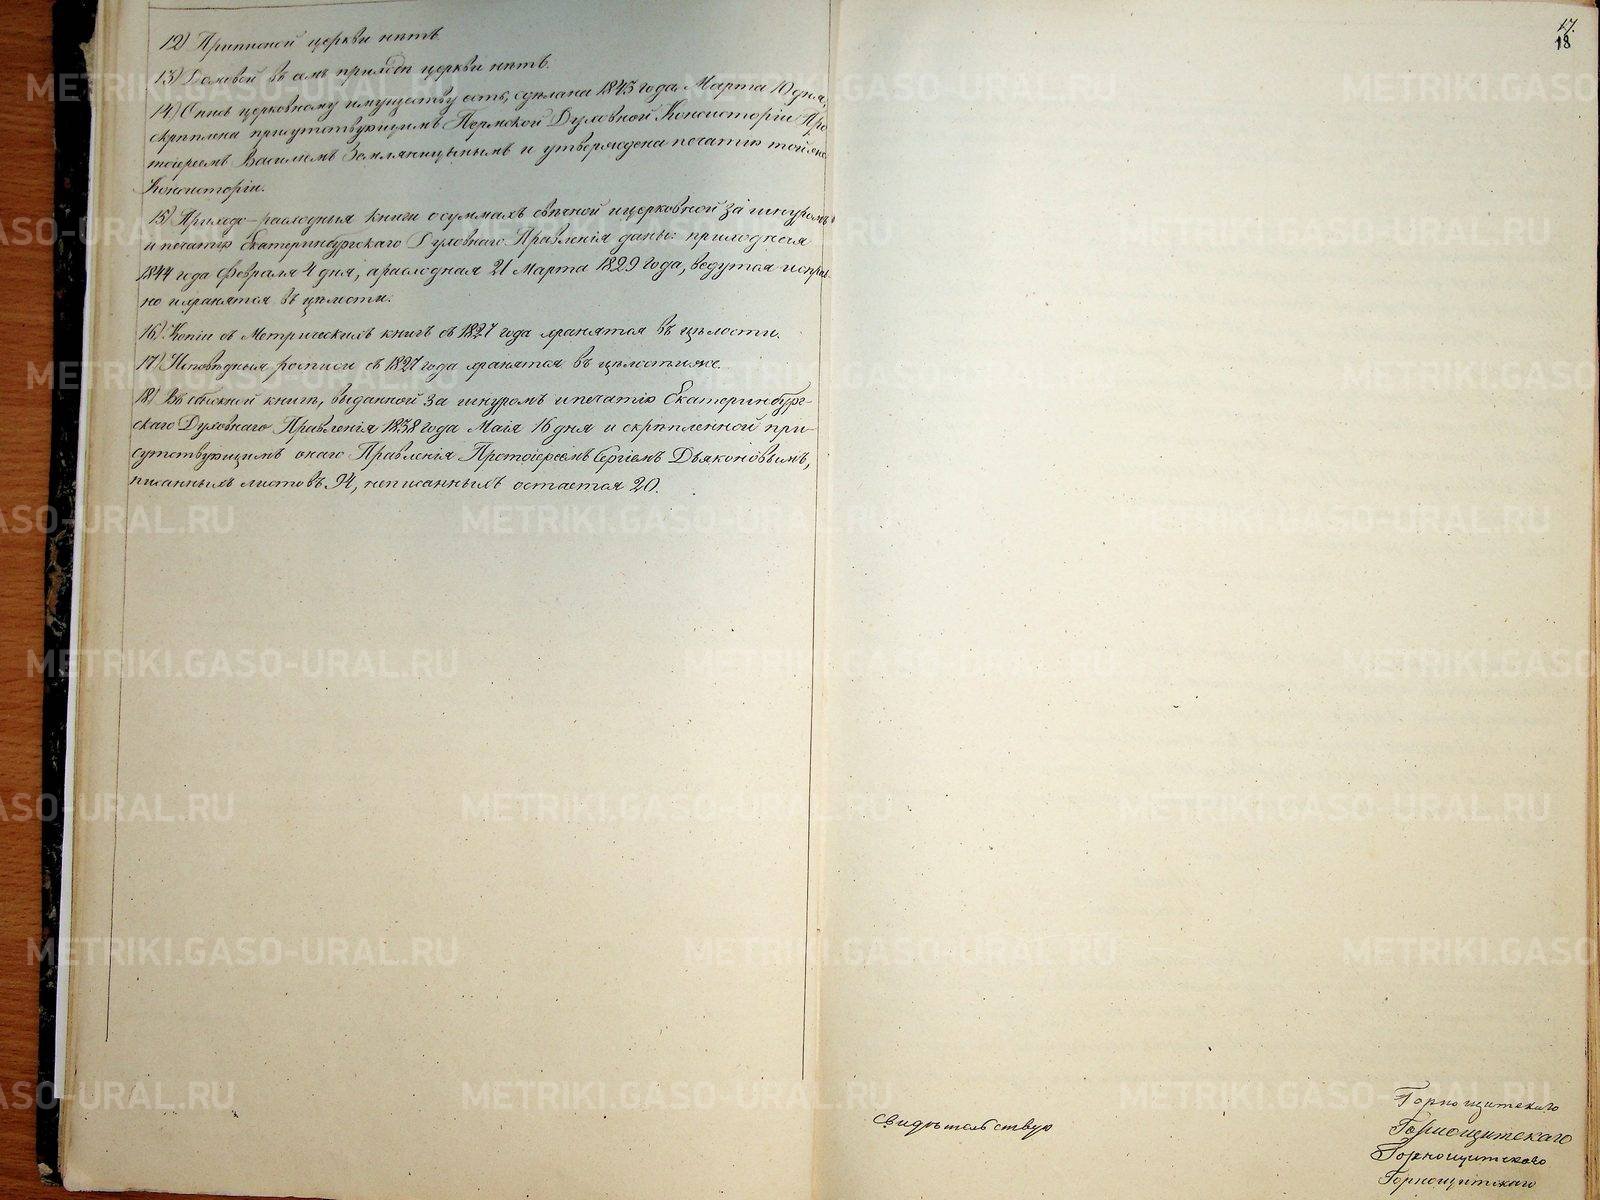 12) Приписной церкви нѣтъ.
13) Домовой въ семъ приходѣ церкви нѣтъ.
14) Опись церковному имуществу есть, сдѣлана 1843 года Марта 10 дня,
скрѣплена присутствующимъ Пермской Духовной Консисторіи Про
тоіереемъ Василіемъ Земляницынымъ и утверждена печатію той же
Консисторіи.
15) Приходо-расходныя книги о суммахъ свѣчной и церковной за шнуромъ
и печатію Екатеринбургскаго Духовнаго Правленія даны: приходная
1844 года Февраля 4 дня, а расходная 21 Марта 1829 года, ведутся исправ-
но и хранятся въ цѣлости.
16) Копіи съ Метрическихъ книгъ съ 1827 года хранятся въ цѣлости.
17) Исповѣдныя росписи съ 1827 года хранятся въ цѣлости же.
18) Въ обыскной книгѣ, выданной за шнуромъ и печатію Екатеринбург-
скаго Духовнаго Правленія 1838 года Маія 16 дня и скрѣпленной при-
сутствующимъ онаго Правленія Протоіереемъ Сергіемъ Дьяконовымъ,
писанныхъ листовъ 94, неписанныхъ остается 20.
17.
18
Свидѣтельствую
Горнощитскаго
Горнощитскаго
Горнощитскаго
Горнощитскаго
METRIKI.GASO-URAL.RU